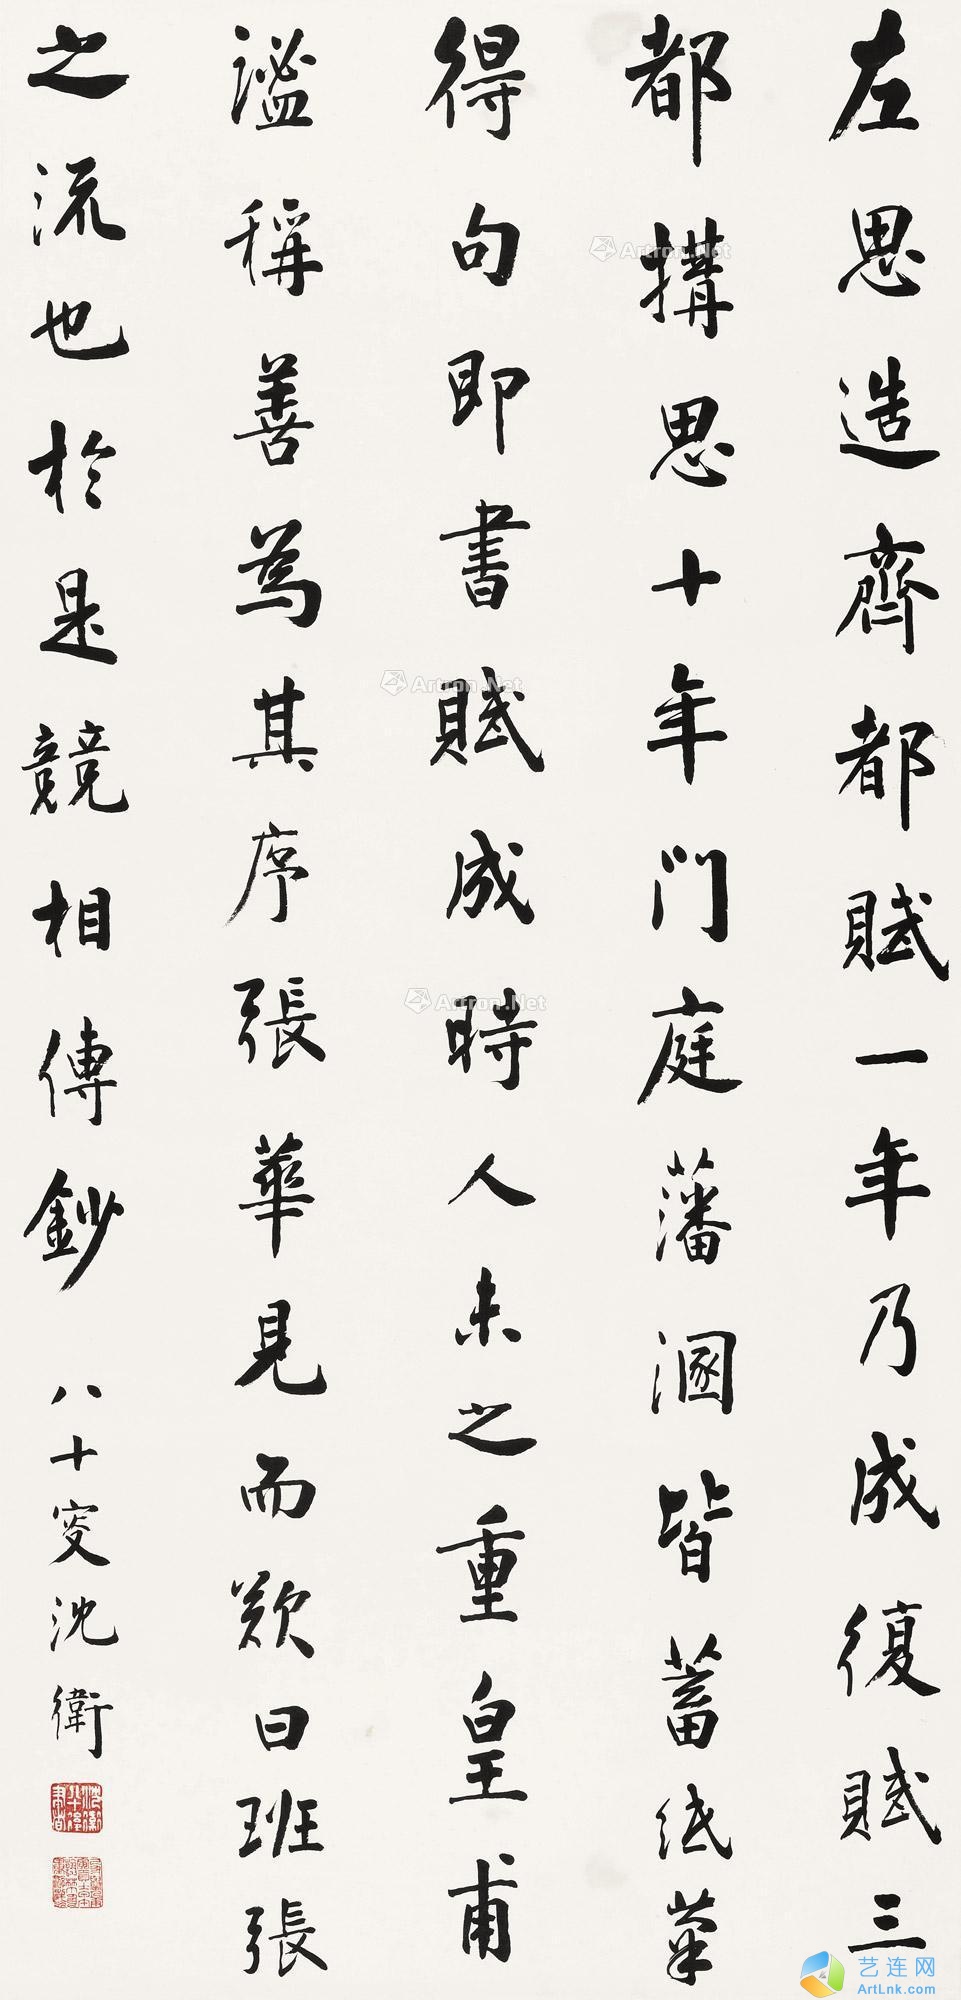 左思造齊都賦一年乃成復賦三
都搆思十年門庭藩溷皆蓄紙筆
得句即書賦成時人未之重皇甫
謐稱善為其序張華見而歎曰班張
之流也於是競相傳鈔
八十叟沈衛
Artron.Net
Artron.Net
Artron.Net
艺连网
ArtLnk.com